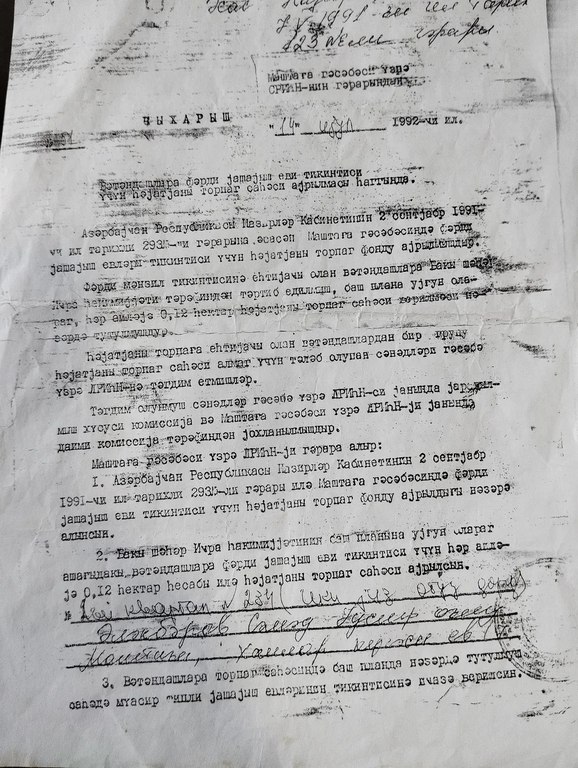 1991-чи ил
123 №ли гәрары
Маштаға гәсәбәси үзрә
-нин гәрарындан
ЧЫХАРЫШ
"14" 1992-чи ил.
Вәтәндашлара фәрди јашајыш еви тикинтиси
үчүн һәјәтјаны торпаг саһәси ајрылмасы һаггында.
Азәрбајчан Республикасы Назирләр Кабинетинин 2 сентјабр 1991-
чи ил тарихли 293 гәрарына әсасән Маштаға гәсәбәсиндә фәрди
јашајыш евләри тикинтиси үчүн һәјәтјаны торпаг фонду ајрылмышдыр.
Фәрди мәнзил тикинтисинә еһтијачы олан вәтәндашлара Бакы шәһәр
Ичра һакимијјәти тәрәфиндән тәртиб едилмиш, баш плана ујғун ола-
раг, һәр аиләјә 0,12 һектар һәјәтјаны торпаг саһәси верилмәси нә-
зәрдә тутулмушдур.
һәјәтјаны торпаға еһтијачы олан вәтәндашлардан бир групу
һәјәтјаны торпаг саһәси алмаг үчүн тәләб олунан сәнәдләри гәсәбә
үзрә нә тәгдим етмишләр.
Тәгдим олунмуш сәнәдләр гәсәбә үзрә си јанында јарадыл-
мыш хүсуси комиссија вә Маштаға гәсәбәси үзрә ји јанында
даими комиссија тәрәфиндән јохланылмышдыр.
Маштаға гәсәбәси үзрә ји гәрара алыр:
1. Азәрбајчан Республикасы Назирләр Кабинетинин 2 сентјабр
1991-чи ил тарихли 293 ли гәрары илә Маштаға гәсәбәсиндә фәрди
јашајыш еви тикинтиси үчүн һәјәтјаны торпаг фонду ајрылдығы нәзәрә
алынсын.
2. Бакы шәһәр Ичра һакимијјәтинин баш планына ујғун олараг
ашағыдакы вәтәндашлара фәрди јашајыш еви тикинтиси үчүн һәр аилә-
јә 0,12 һектар һесабы илә һәјәтјаны торпаг саһәси ајрылсын.
№ квартал 234 (ики јүз отуз дөрд)
Сәмәд
3. Вәтәндашлара торпаг саһәсиндә баш планда нәзәрдә тутулмуш
саһәдә мүасир типли јашајыш евләринин тикинтисинә ичазә верилсин.